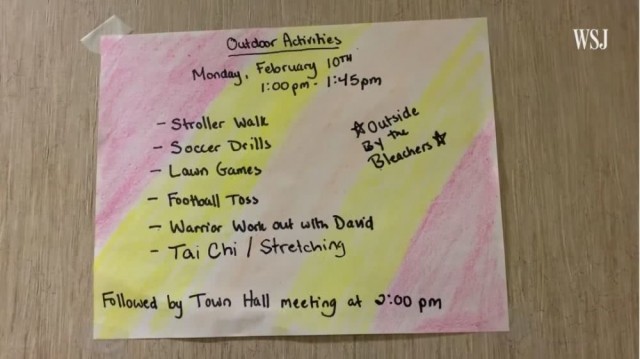 WSJ
Outdoor Activities
Monday, February 10TH
1:00pm - 1:45pm
- Stroller Walk
- Soccer Drills
- Lawn Games
- Football Toss
- Warrior Work out with David
- Tai Chi / Stretching
☆Outside
By the
Bleachers☆
Followed by Town Hall meeting at 2:00 pm